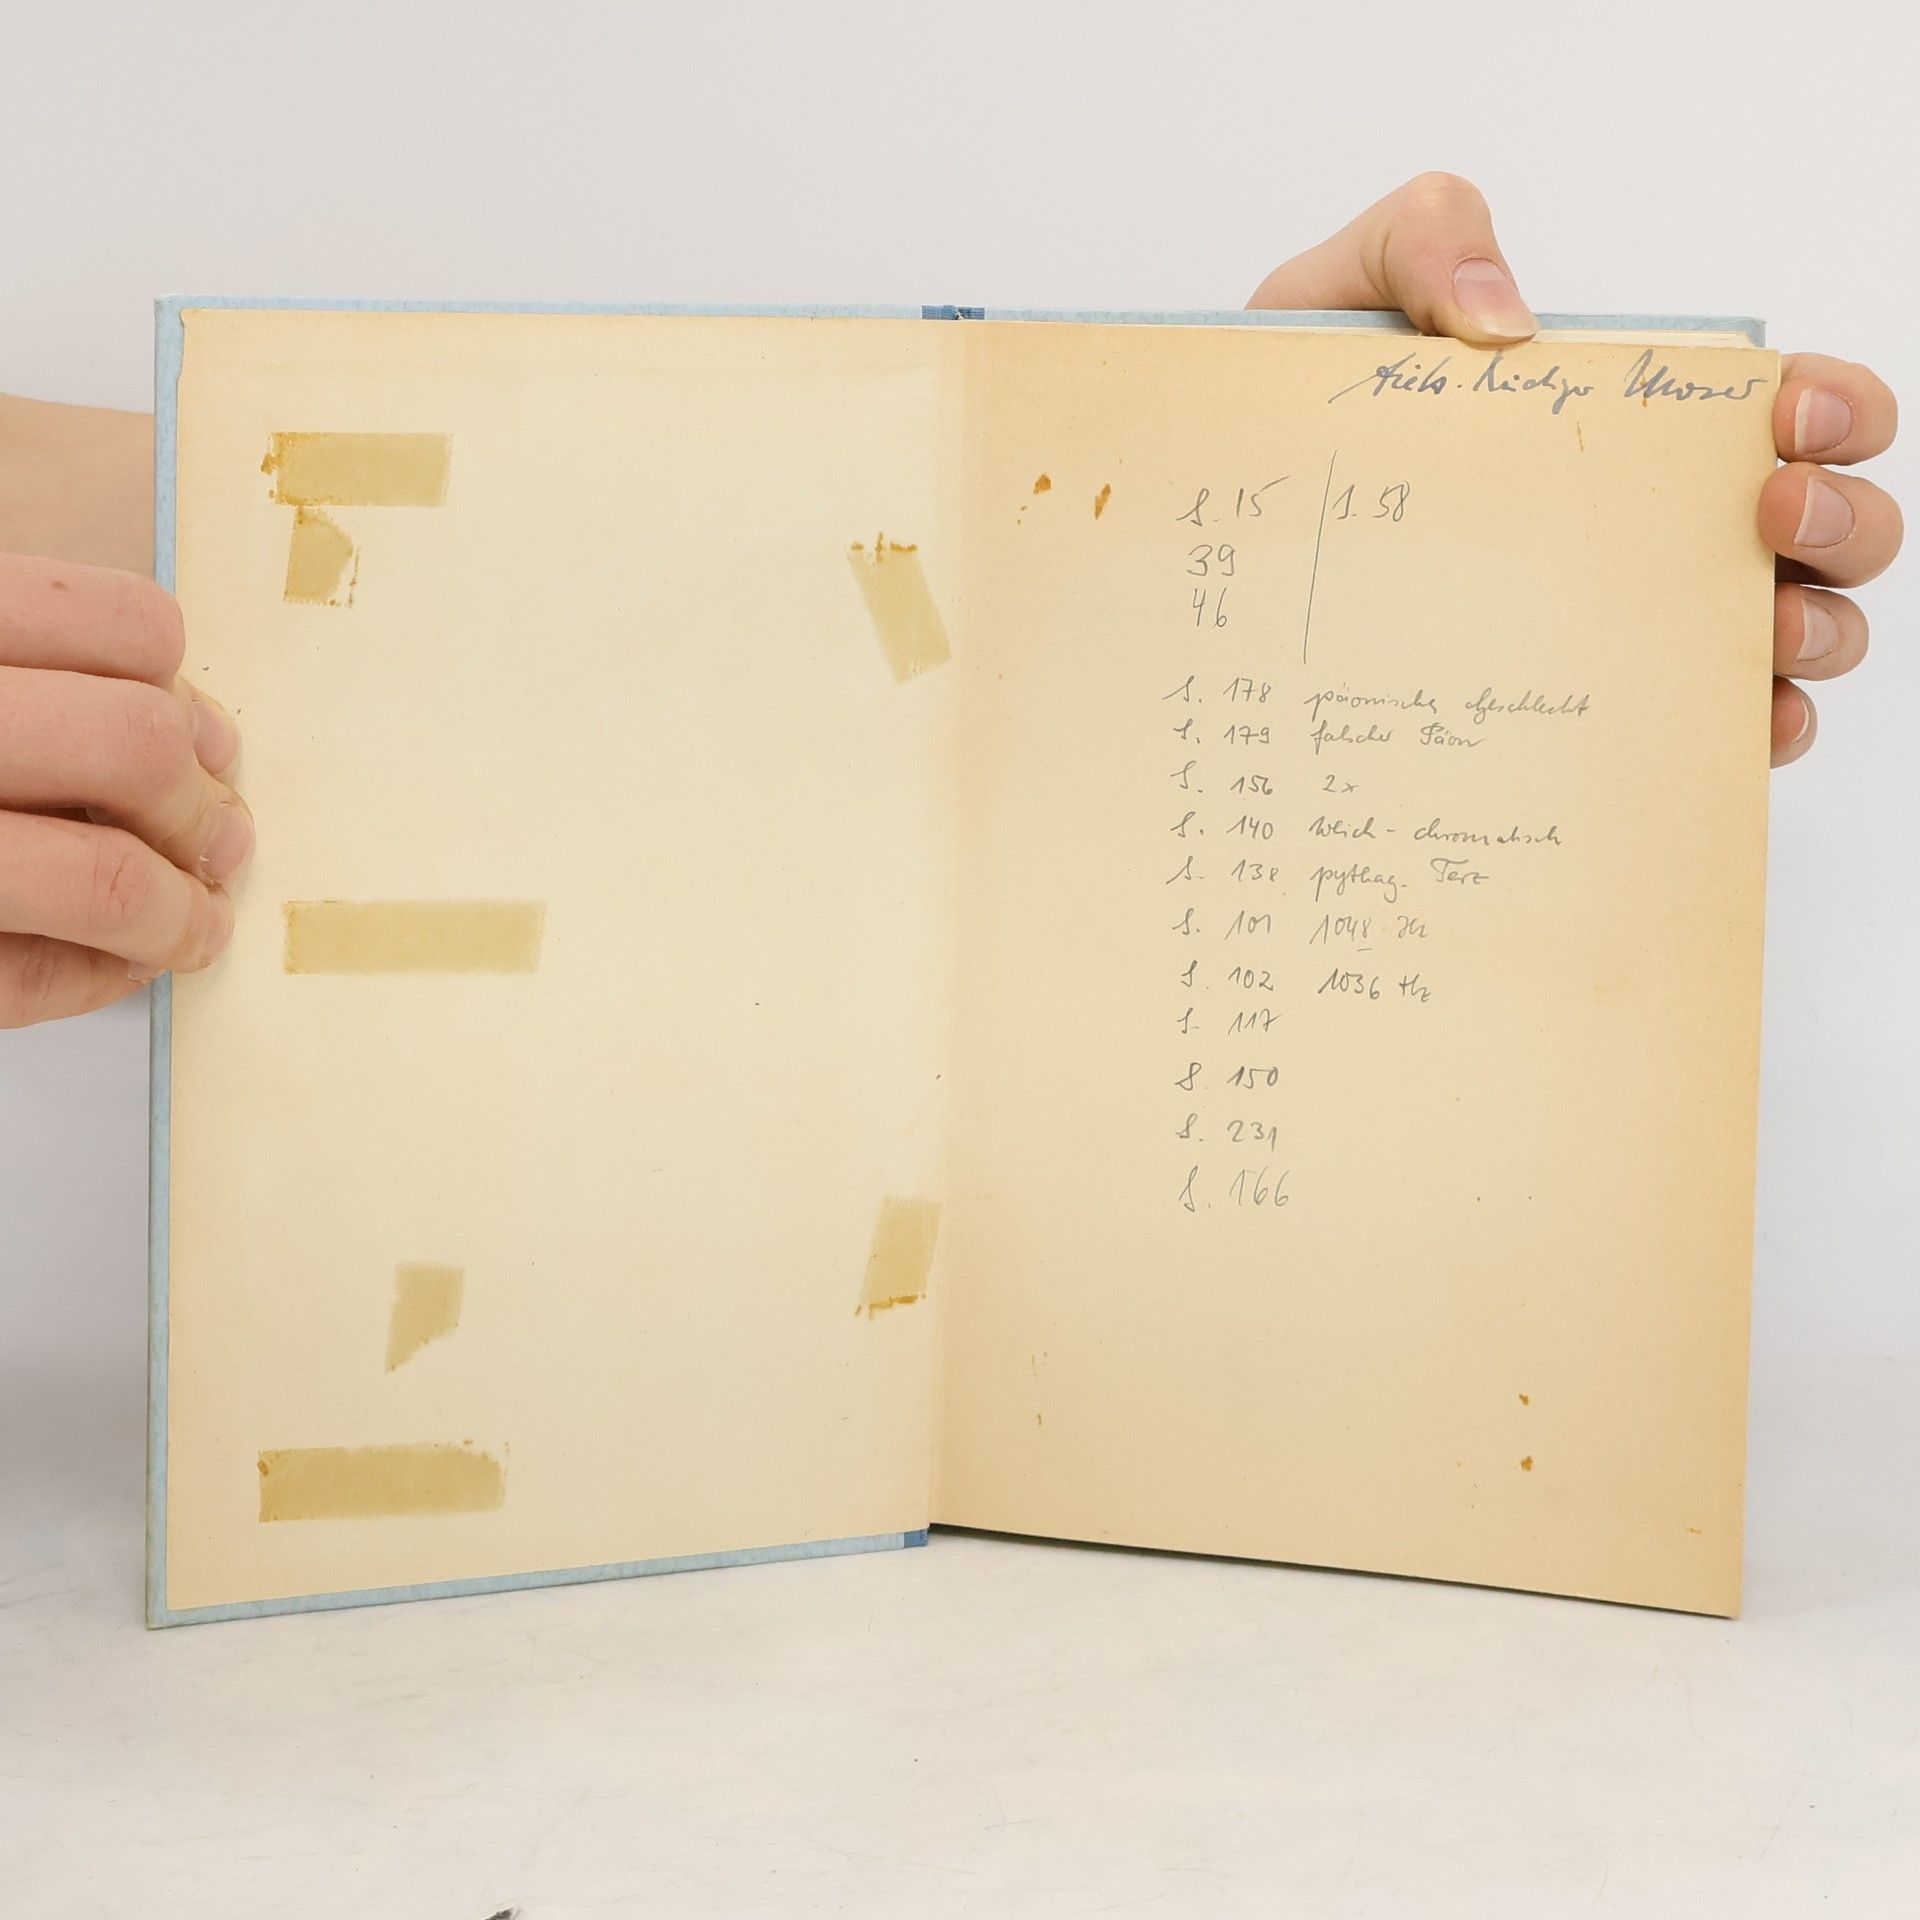 Dietz-Rüdiger Moser
S. 15 / S. 58
39
46
S. 178 päonisches Geschlecht
S. 179 falscher Päon
S. 156 2x
S. 140 weich-chromatisch
S. 138 pythag. Terz
S. 101 1048 Hz
S. 102 1036 Hz
S. 117
S. 150
S. 231
S. 166